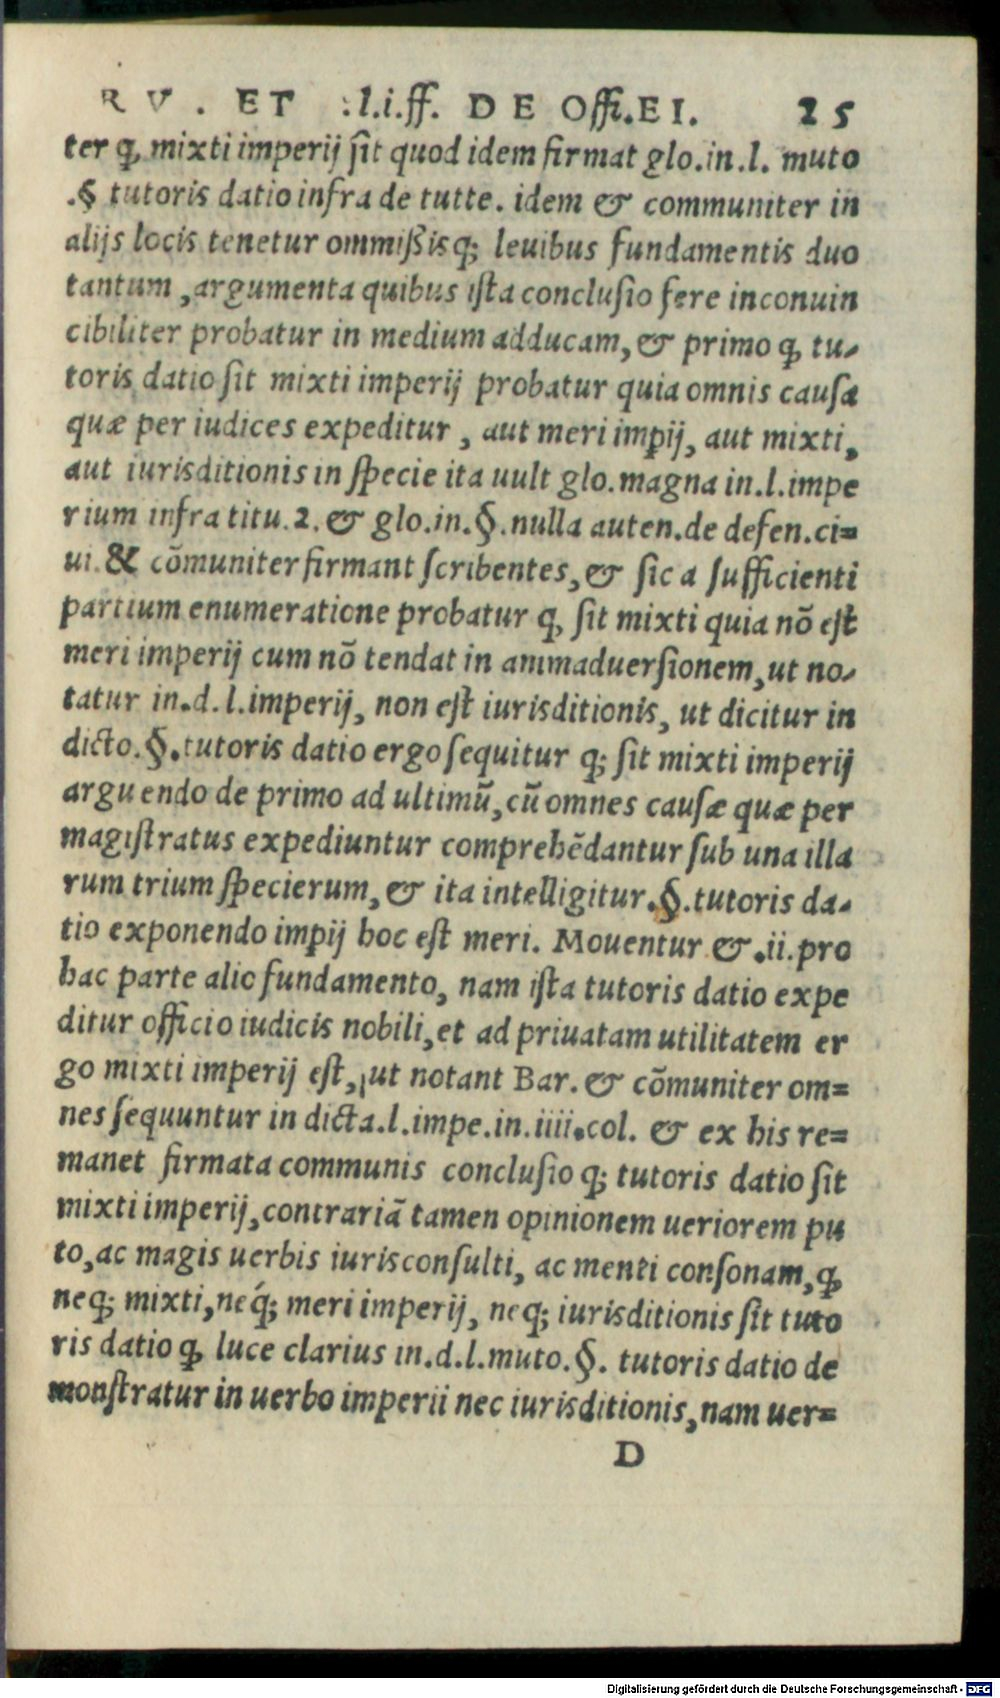 RV. ET .l.i.ff. DE Offi.EI. 25
ter ꝙ mixti imperij ſit quod idem firmat glo.in.l. muto
.§ tutoris datio infra de tutte. idem & communiter in
alijs locis tenetur ommißisq; leuibus fundamentis duo
tantum ,argumenta quibus iſta concluſio fere inconuin
cibiliter probatur in medium adducam, & primo ꝙ tu-
toris datio ſit mixti imperij probatur quia omnis cauſa
quæ per iudices expeditur , aut meri imꝑij, aut mixti,
aut iurisditionis in ſpecie ita uult glo.magna in.l.impe
rium infra titu.2. & glo.in.§.nulla auten.de defen.ci=
ui. & cōmuniter firmant ſcribentes, & ſic a ſufficienti
partium enumeratione probatur ꝙ ſit mixti quia nō eſt
meri imperij cum nō tendat in animaduerſionem,ut no-
tatur in.d.l.imperij, non eſt iurisditionis, ut dicitur in
dicto.§.tutoris datio ergo ſequitur q; ſit mixti imperij
arguendo de primo ad ultimū,cū omnes cauſæ quæ per
magiſtratus expediuntur comprehēdantur ſub una illa
rum trium ſpecierum, & ita intelligitur.§.tutoris da-
tio exponendo imꝑij hoc eſt meri. Mouentur & .ii.pro
hac parte alio fundamento, nam iſta tutoris datio expe
ditur officio iudicis nobili,et ad priuatam utilitatem er
go mixti imperij eſt, ut notant Bar. & cōmuniter om=
nes ſequuntur in dicta.l.impe.in.iiii.col. & ex his re=
manet firmata communis concluſio q; tutoris datio ſit
mixti imperij,contrariā tamen opinionem ueriorem pu
to,ac magis uerbis iurisconſulti, ac menti conſonam,ꝙ
neq; mixti,neq́; meri imperij, neq; iurisditionis ſit tuto
ris datio ꝙ luce clarius in.d.l.muto.§. tutoris datio de
monſtratur in uerbo imperii nec iurisditionis,nam uer=
D
Digitalisierung gefördert durch die Deutsche Forschungsgemeinschaft - DFG